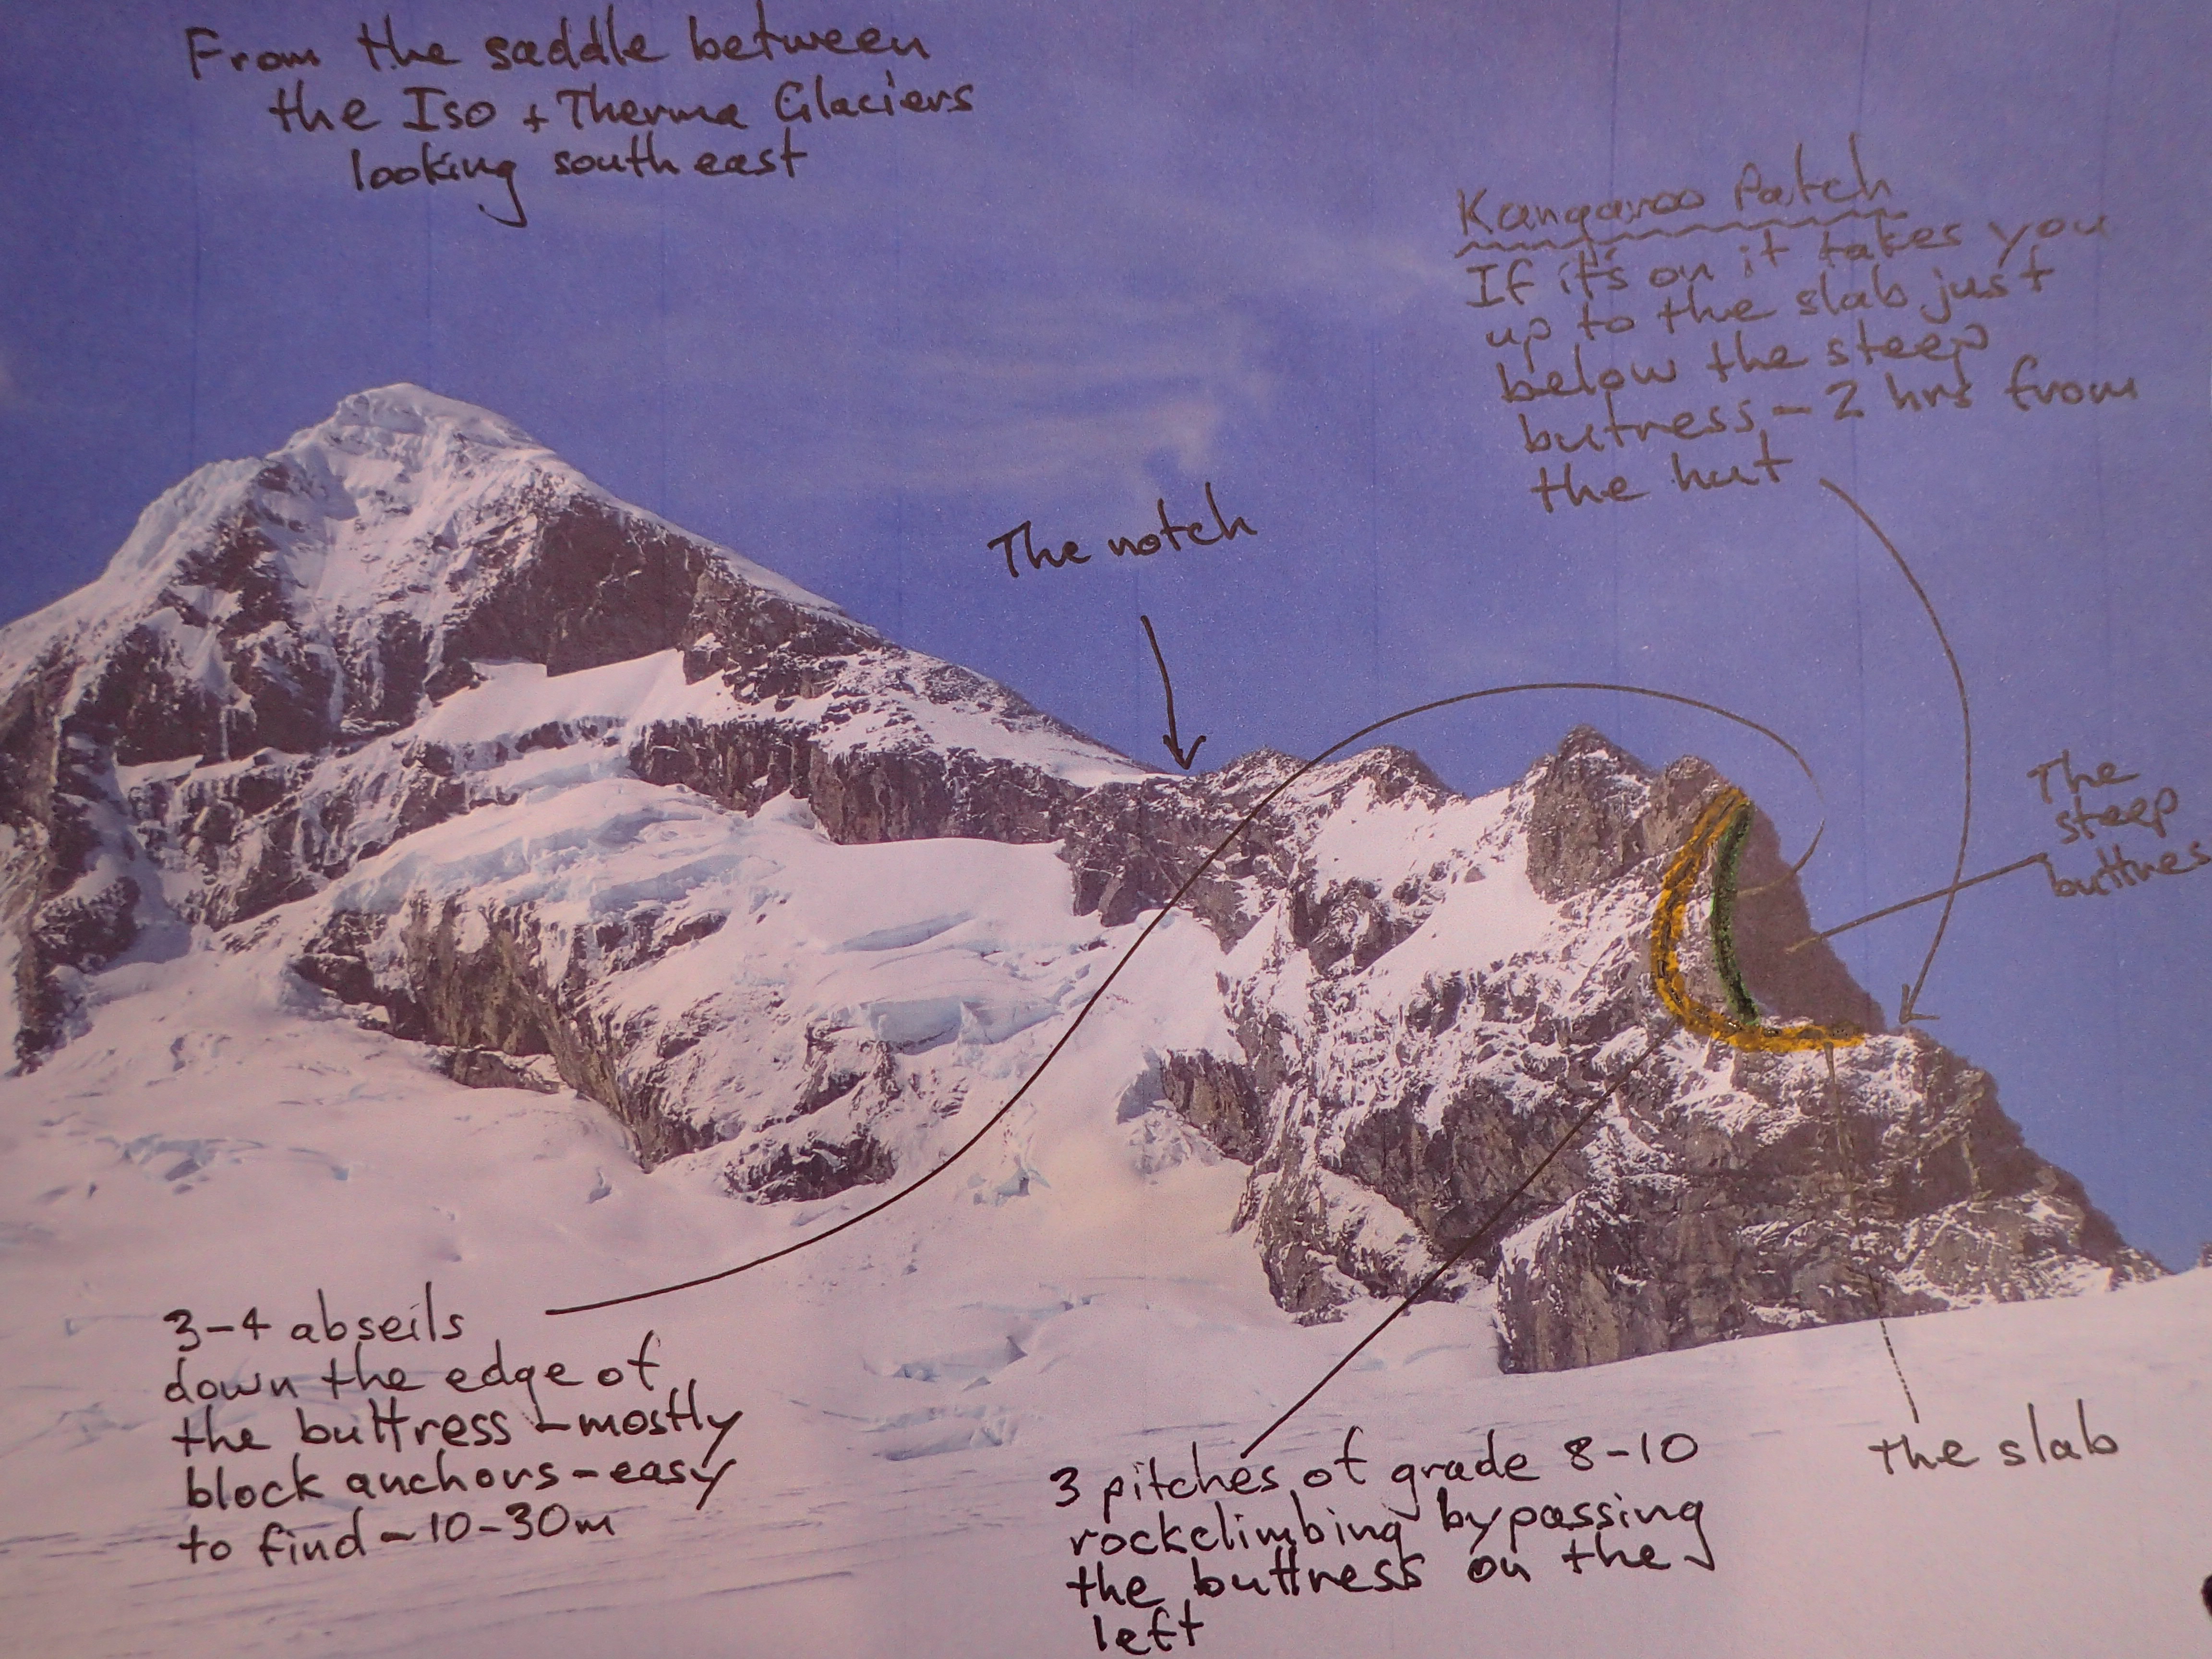 From the saddle between
the Iso + Therma Glaciers
looking south east
Kangaroo Patch
If it's on it takes you
up to the slab just
below the steep
butress - 2 hrs from
the hut
The notch
The
steep
buttres
3-4 abseils
down the edge of
the buttress - mostly
block anchors - easy
to find - 10-30m
3 pitches of grade 8-10
rockclimbing bypassing
the buttress on the
left
The slab